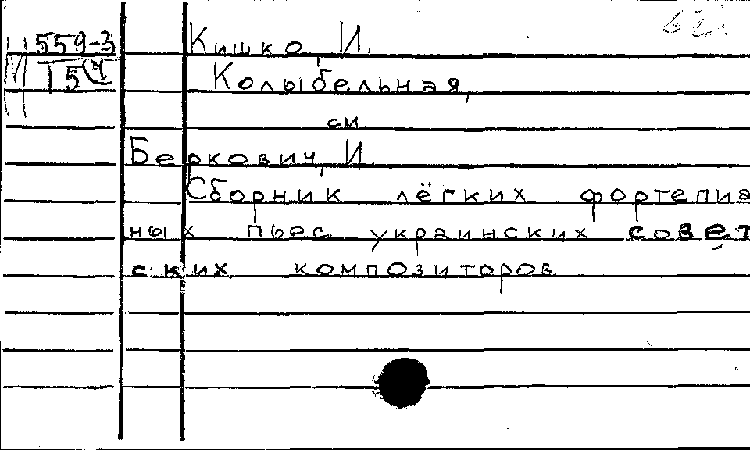 559-3 Кишко, И.
Колыбельная,
см.
Беркович, И.
Сборник лёгких фортепиа
ных пьес украинских совет
ских композиторов